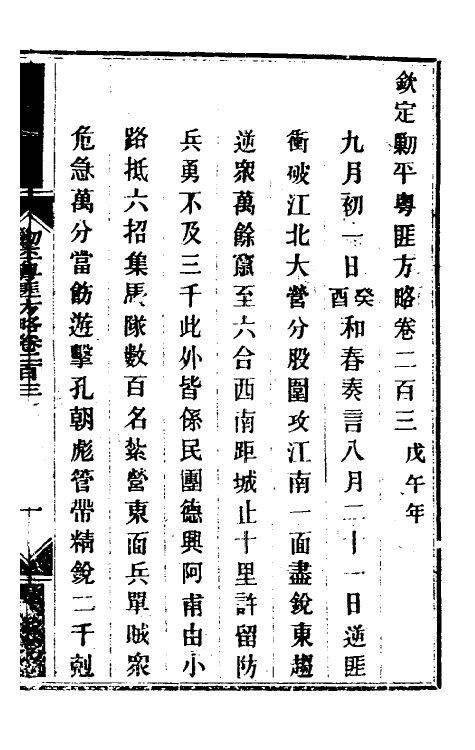 欽定勦平粵匪方略卷二百三 戊午年
九月初一日癸酉和春奏言八月二十一日逆匪
衝破江北大營分股圍攻江南一面盡銳東趨
逆衆萬餘竄至六合西南距城止十里許留防
兵勇不及三千此外皆係民團德興阿甫由小
路抵六招集馬隊數百名紮營東面兵單賊衆
危急萬分當飭遊擊孔朝彪管帶精銳二千剋
卷二百三
一